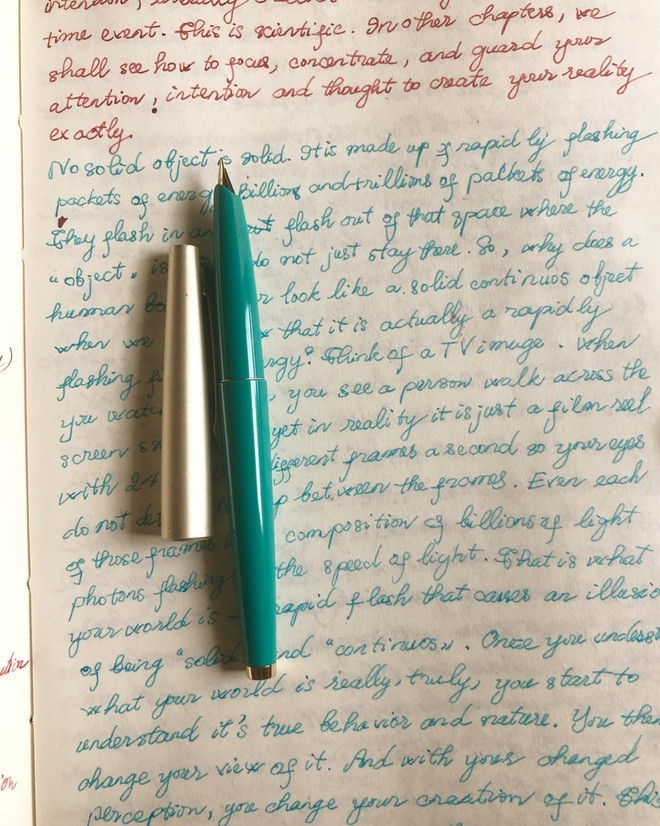 time event. This is scientific. In other chapters, we
shall see how to focus, concentrate, and guard your
attention, intention and thought to create your reality
exactly.
No solid object is solid. It is made up of rapidly flashing
packets of energy. Billions and trillions of packets of energy.
They flash in and flash out of that space where the
"object" is do not just stay there. So, why does a
human look like a solid continuos object
when we that it is actually a rapidly
flashing Think of a TV image. When
you you see a person walk across the
screen yet in reality it is just a film reel
with 24 different frames a second so your eyes
do not between the frames. Even each
of those frames composition of billions of light
photons flashing the speed of light. That is what
your world is - rapid flash that causes an
of being "solid" and "continuos". Once you
what your world is really, truly, you start to
understand it's true behavior and nature. You then
change your view of it. And with your changed
perception, you change your creation of it.